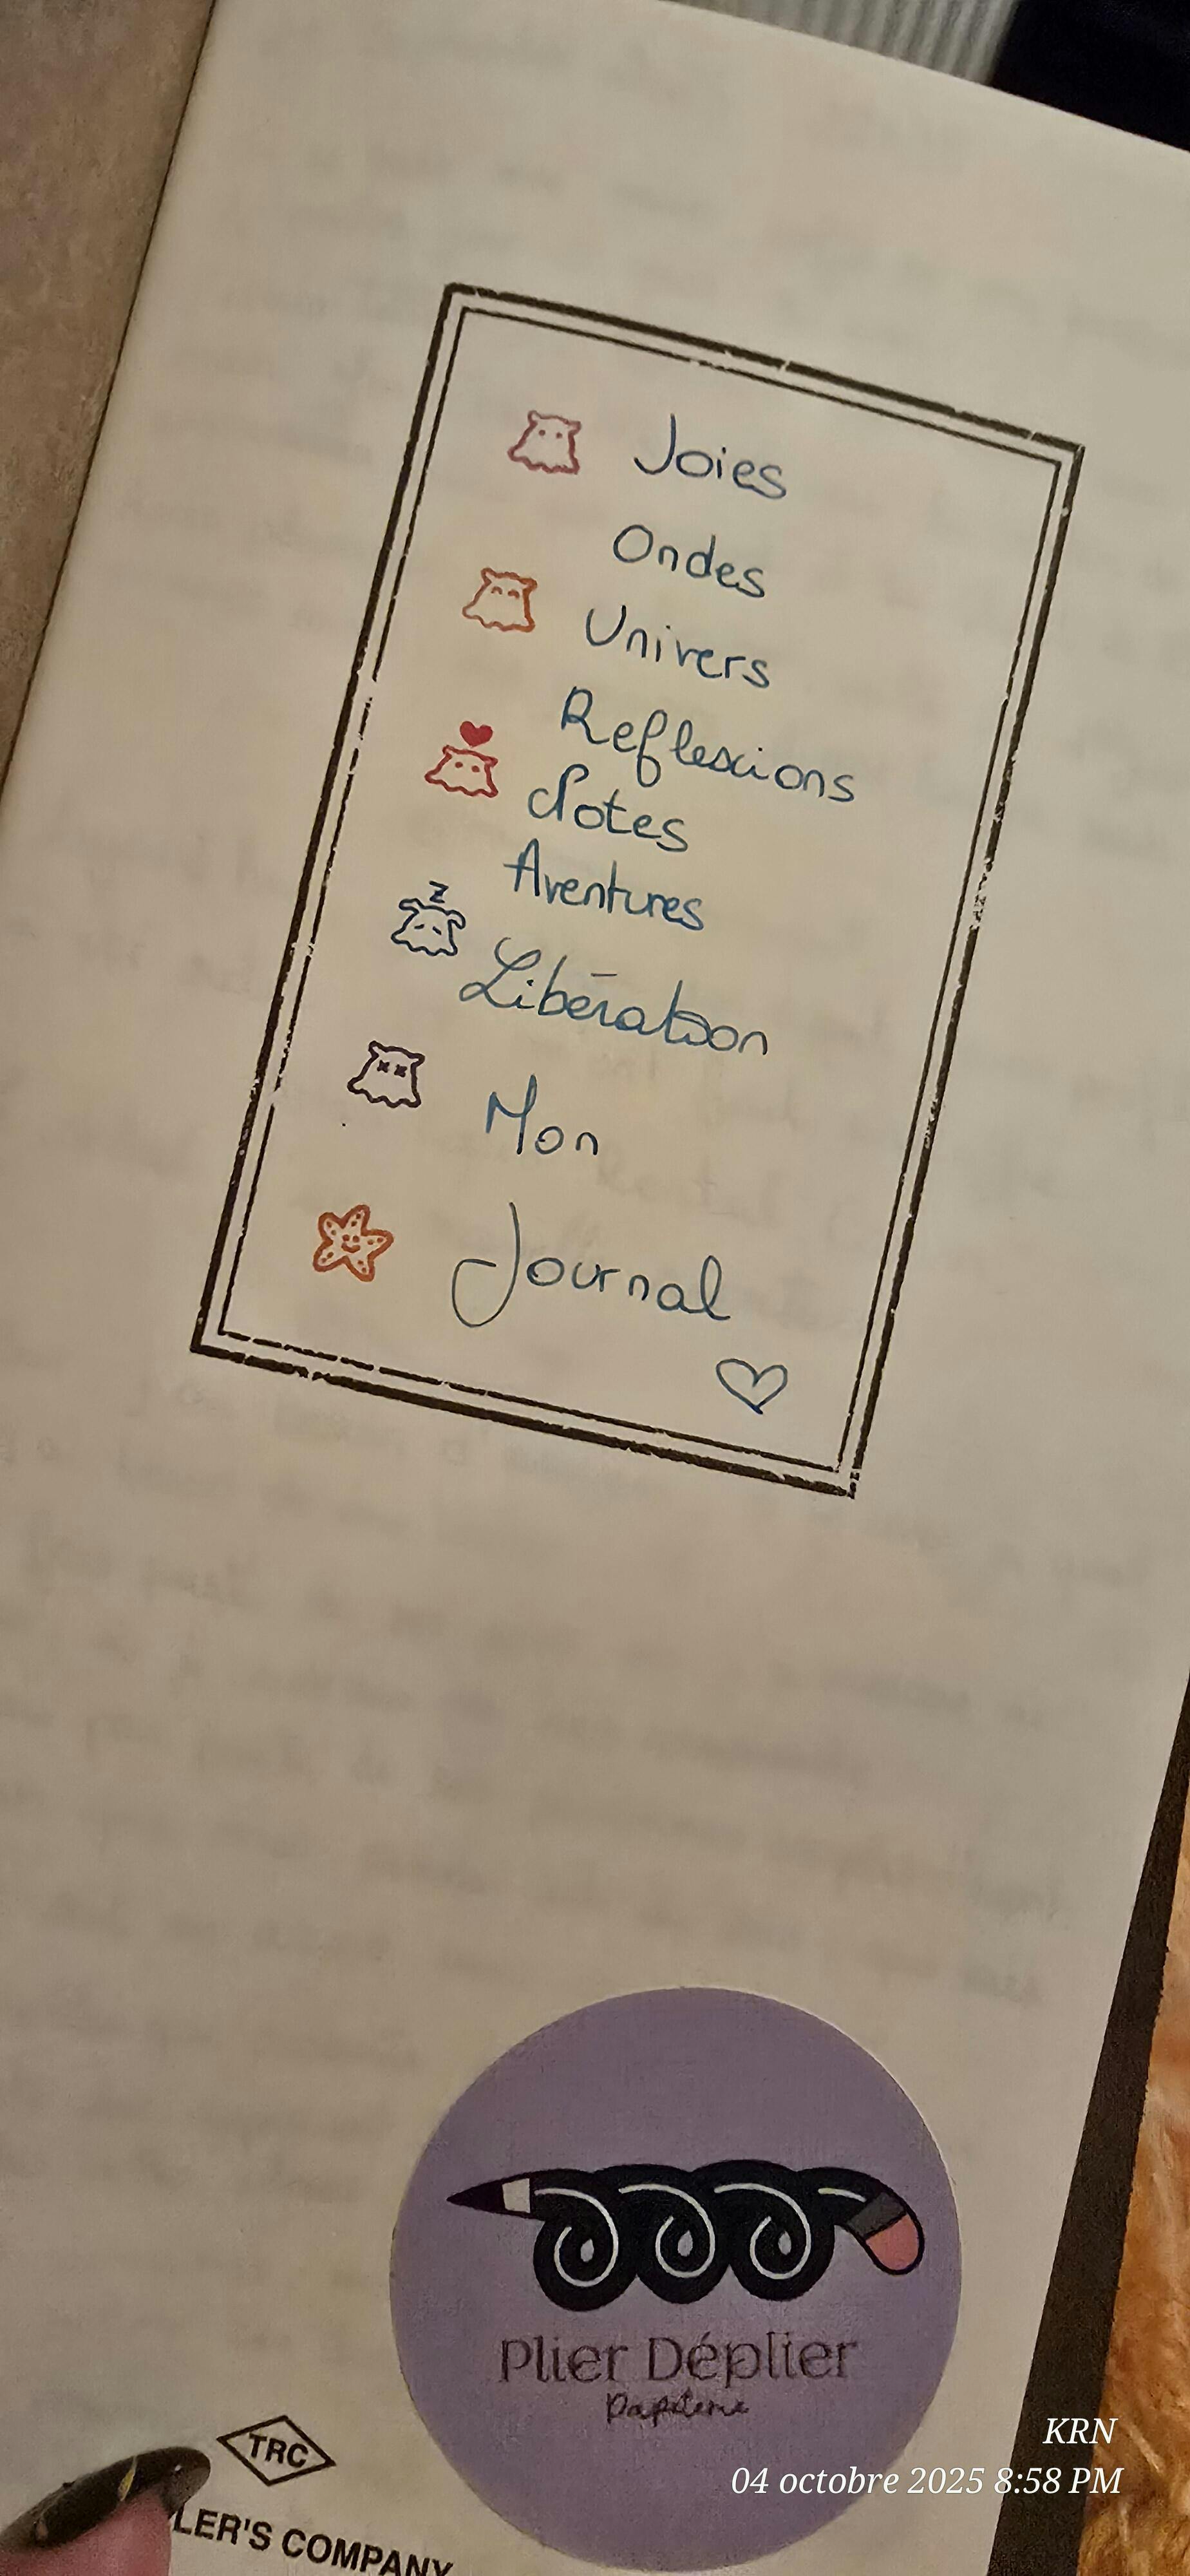 Joies
Ondes
Univers
Reflexions
Notes
Aventures
Z
Libération
Mon
Journal
Plier Déplier
Papeterie
TRC
LER'S COMPANY
KRN
04 octobre 2025 8:58 PM